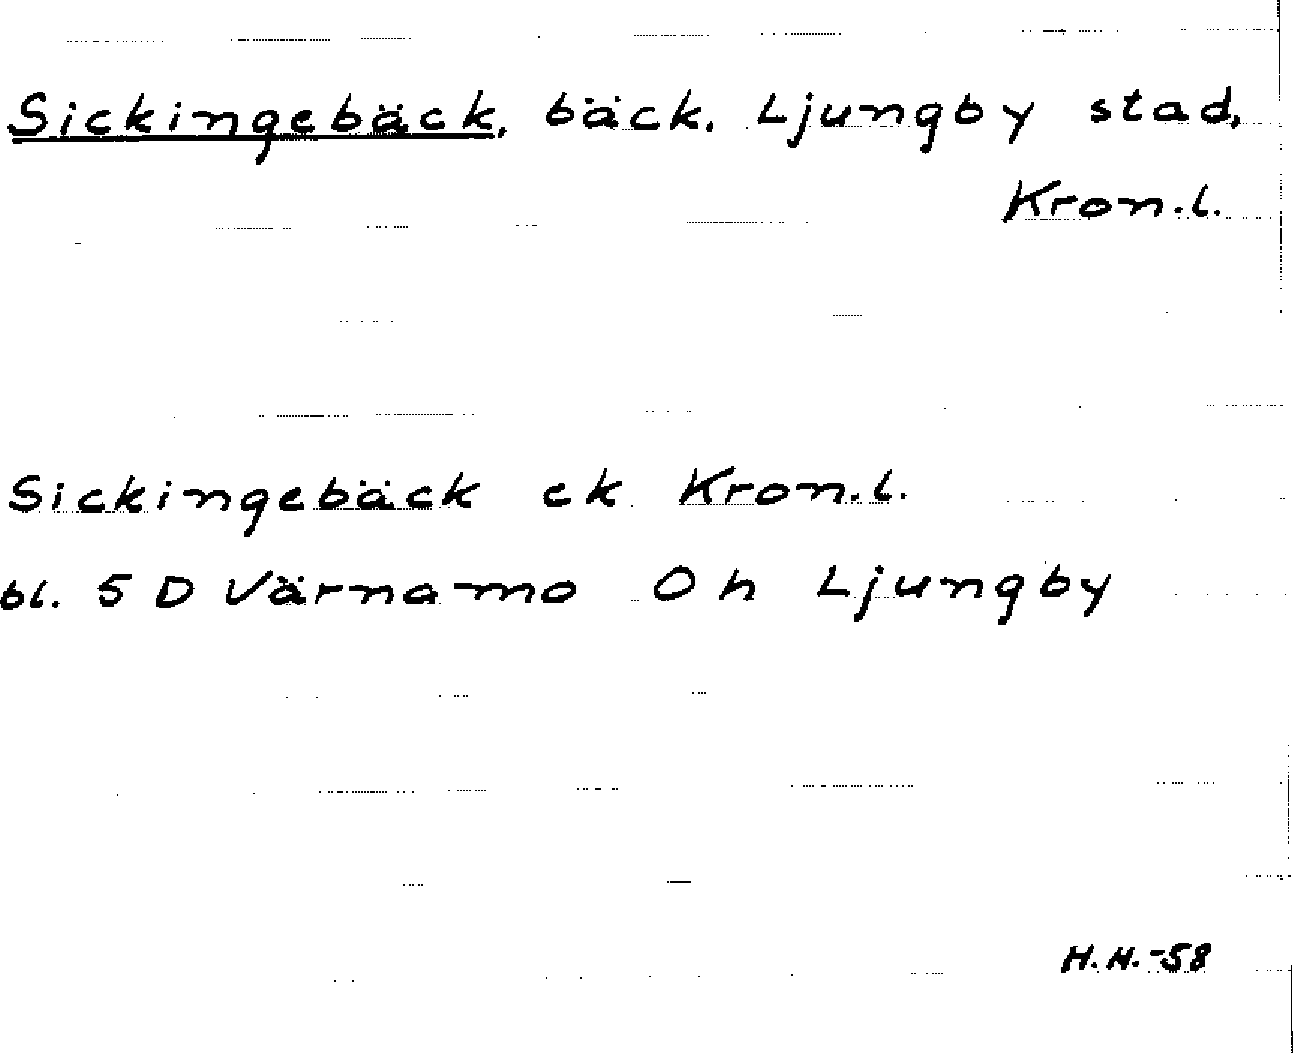 Sickingebäck, bäck. Ljungby stad,
Kron.l.
Sickingebäck ek Kron.l.
bl. 5 D Värnamo Oh Ljungby
H.H.-58